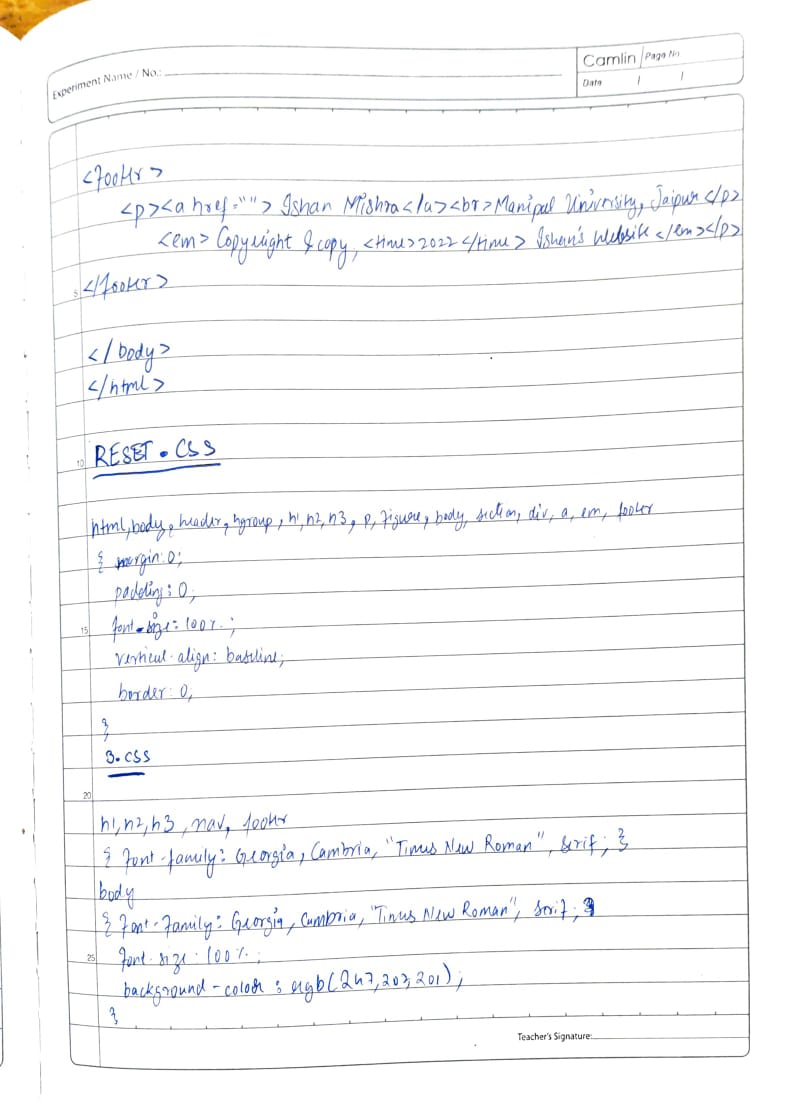 Experiment Name / No.:
Camlin Page No.
Date / /
<footer>
<p><a href=""> Ishan Mishra</a><br>Manipal University, Jaipur</p>
<em> Copyright &copy, <time>2022</time> Ishan's Website </em></p>
5 </footer>
</body>
</html>
10 RESET.CSS
html,body, header, hgroup, h1,h2,h3, p, figure, body, section, div, a, em, footer
{ margin:0;
padding: 0;
15 font-size: 100%;
vertical-align: baseline;
border: 0;
}
3.CSS
20
h1,h2,h3, nav, footer
{ font-family: Georgia, Cambria, "Times New Roman", serif; }
body
{ font-family: Georgia, Cambria, "Times New Roman", serif;
25 font-size: 100%;
background-color: rgb(247,203,201);
}
Teacher's Signature: